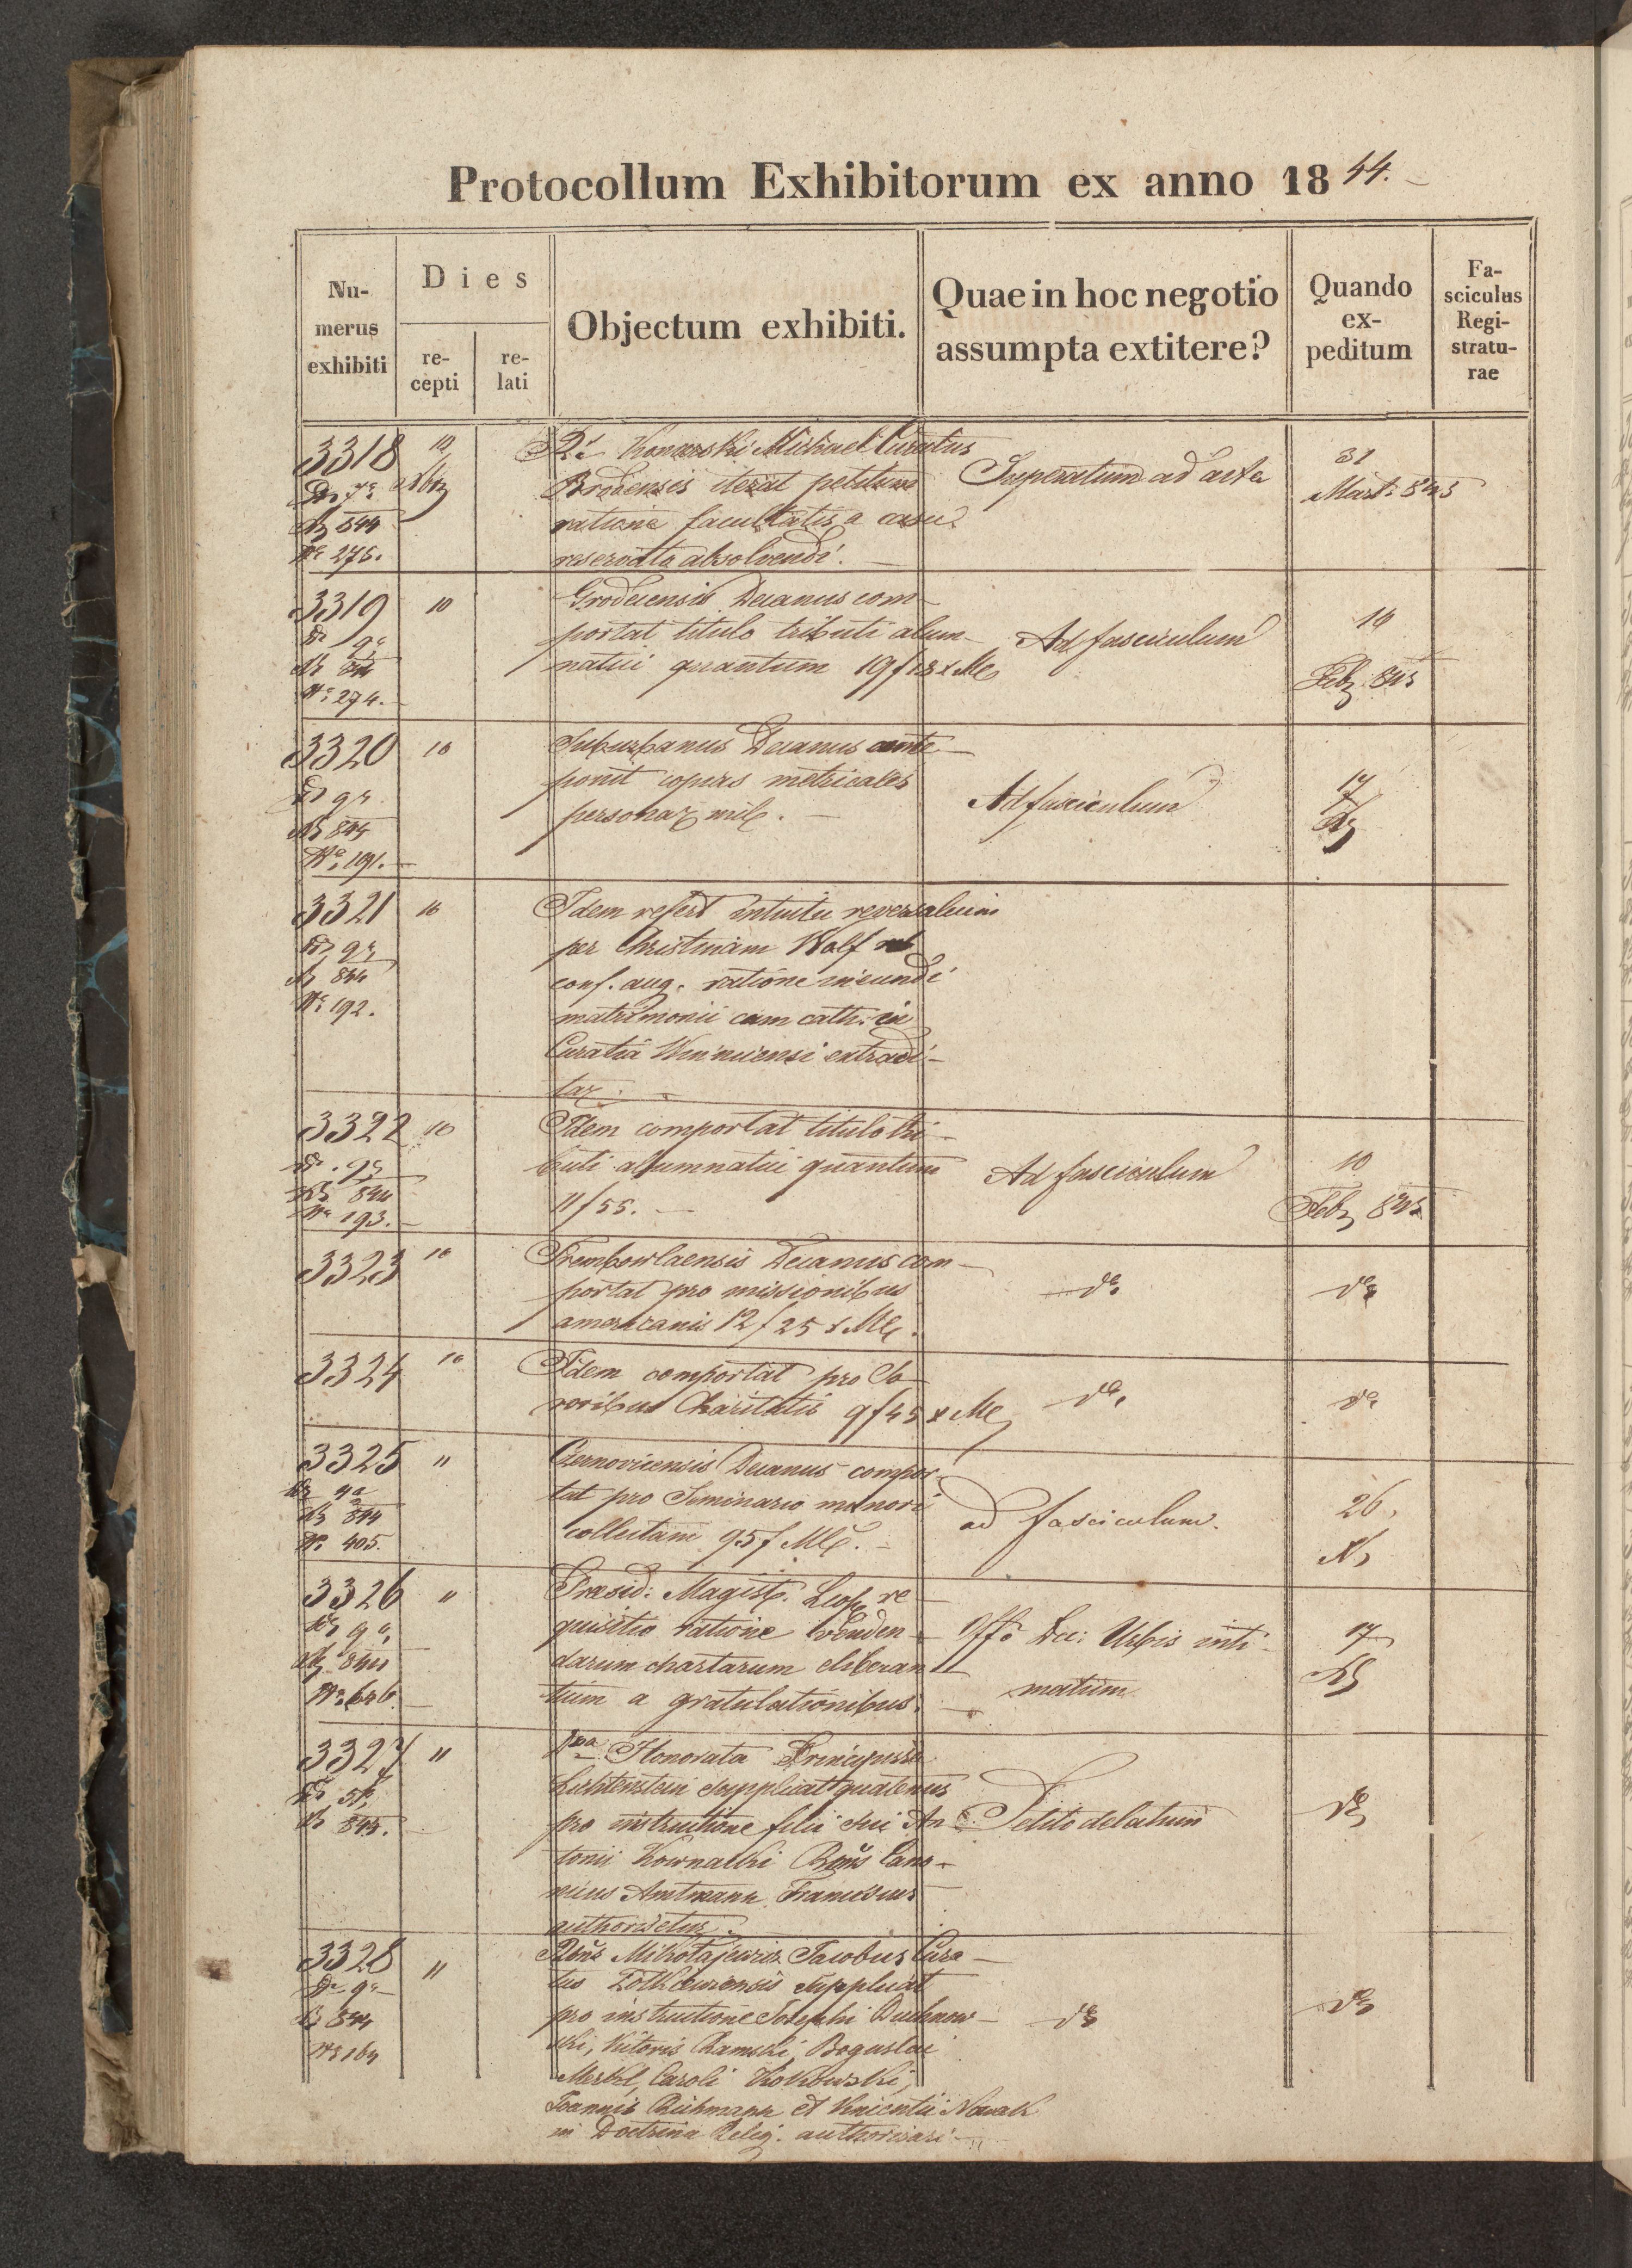 Protocollum Exhibitorum ex anno 1844.
Nu-
merus
exhibiti
Dies
re-
cepti
re-
lati
Objectum exhibiti.
Quae in hoc negotio
assumpta extitere?
Quando
ex-
peditum
Fa-
sciculus
Regi-
stratu-
rae
3318 10
844
No 275.
Konarski Michael Curatus
Brodensis iterat petitum
ratione facultatis a casu
reservato absolvendi.
ad acta
31
Mart: 845
3319 10
844
No 274.
Grodecensis Decanus com-
portat titulo tributi alum-
natici quantum 19 f 13 x
Ad fasciculum
10
Feb 845
3320 10
9
844
No 191.
Suburbanus Decanus
ponit copias metricales
Ad fasciculum
17
3321 10
9
844
No 192.
Idem refert intuitu reversalium
per Christinam Wolf
conf. aug. ratione ineundi
matrimonii cum cath. in
Curatia extradi-
tar.
3322 10
9
844
No 193.
Idem comportat titulo tri-
buti alumnatici quantum
11 f 55.
Ad fasciculum
10
Feb 845
3323 10
Trembowlaensis Decanus com-
portat pro missionibus
americanis 12 f 25 x
do
do
3324 10
Idem comportat pro So-
roribus Charitatis 9 f 45 x
do
do
3325 "
844
No 405.
Czernovicensis Decanus compor-
tat pro Seminario minori
collectam 95 f
ad fasciculum.
26.
3326 "
9
844
Praesid: Magist. Leop. re-
quisitio ratione venden-
darum chartarum eliberan-
tium a gratulationibus.
Offo Dec: Urbis inti-
matum
17
3327 "
Honorata Principissa
Lichtenstein supplicat quatenus
pro instructione filii sui An-
tonii Kownatki Rdus Cano-
nicus Amtmann Franciscus
authorisetur.
Petito delatum
do
3328 "
9
844
No 164
Rdus Mikołajewicz Jacobus Cura-
tus Zołkiewiensis supplicat
pro instructione Josephi Duchnow-
ski, Victoris Ramski, Boguslai
Merkl, Caroli
Joannis et Vincentii Nowak
in Doctrina Relig. authorisari
do
do